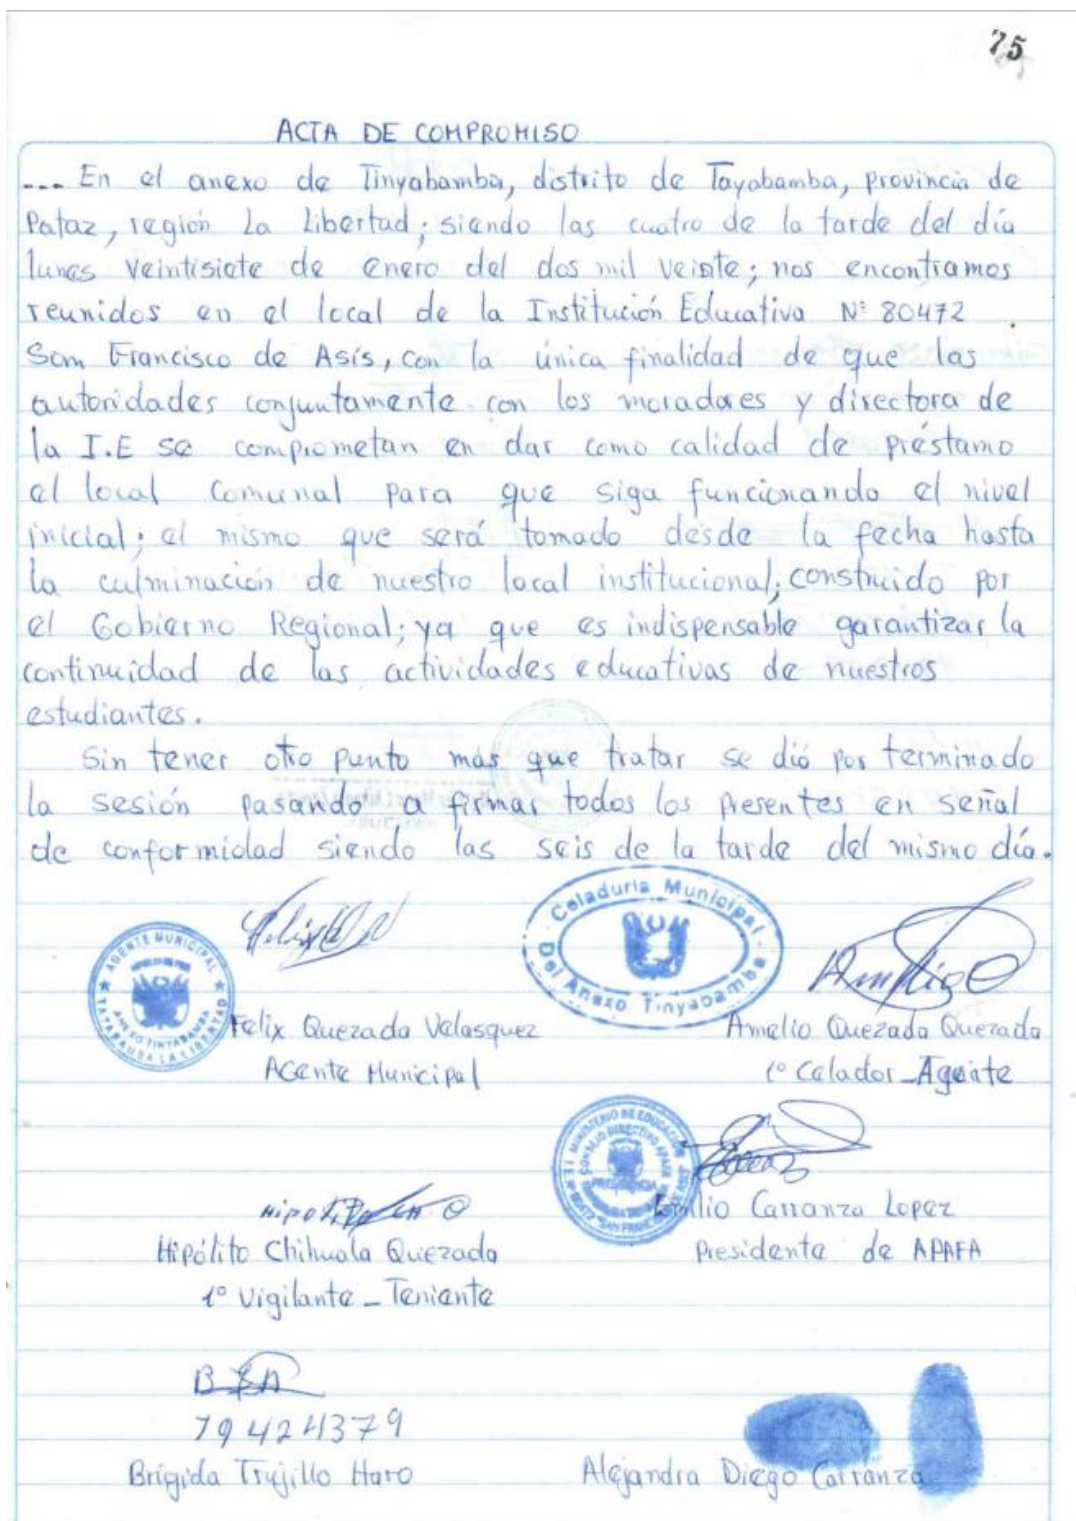 75
ACTA DE COMPROMISO
... En el anexo de Tinyabamba, distrito de Tayabamba, provincia de
Pataz, región La Libertad; siendo las cuatro de la tarde del día
lunes veintisiete de enero del dos mil veinte; nos encontramos
reunidos en el local de la Institución Educativa Nº 80472
San Francisco de Asís, con la única finalidad de que las
autoridades conjuntamente con los moradores y directora de
la I.E se comprometan en dar como calidad de préstamo
el local comunal para que siga funcionando el nivel
inicial; el mismo que será tomado desde la fecha hasta
la culminación de nuestro local institucional; construido por
el Gobierno Regional; ya que es indispensable garantizar la
continuidad de las actividades educativas de nuestros
estudiantes.
Sin tener otro punto más que tratar se dió por terminado
la sesión pasando a firmar todos los presentes en señal
de conformidad siendo las seis de la tarde del mismo día.
AGENTE MUNICIPAL
ANEXO TINYABAMBA
TAYABAMBA LA LIBERTAD
Celaduria Municipal
Del Anexo Tinyabamba
Felix Quezada Velasquez
Agente Municipal
Amelio Quezada Quezada
1º Celador - Agente
MINISTERIO DE EDUCACION
CONSEJO DIRECTIVO APAFA
PRESIDENCIA
I.E. Nº 80472 "SAN FRANCISCO DE ASIS"
Hipólito Chihuala Quezada
1º Vigilante - Teniente
Emilio Carranza Lopez
Presidente de APAFA
79424379
Brigida Trujillo Haro
Alejandra Diego Carranza